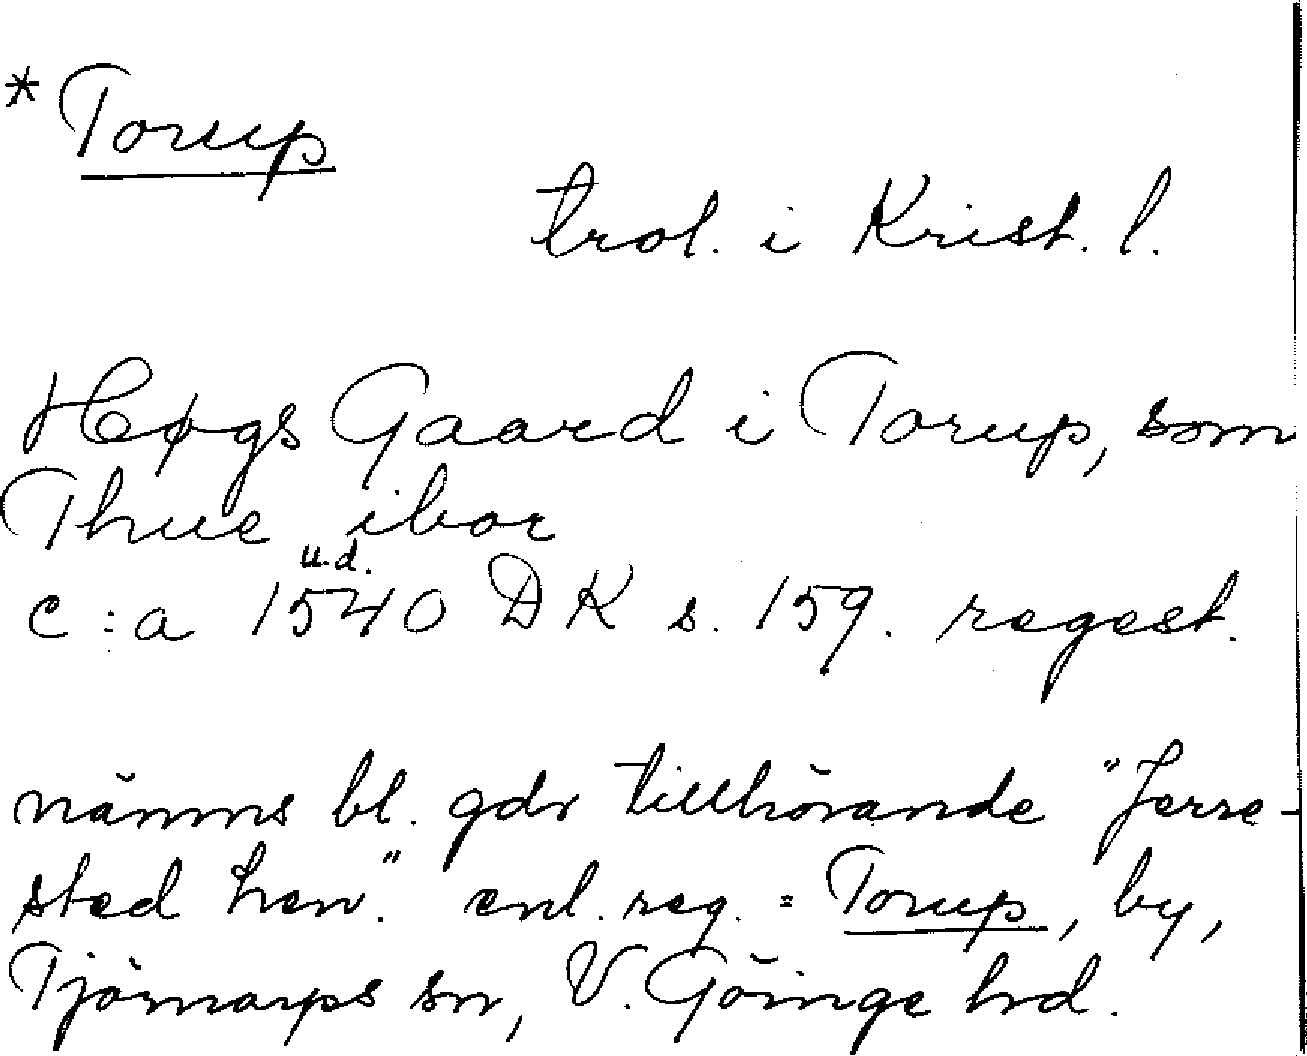 * Torup
trol. i Krist. l.
Høgs Gaard i Torup, som
Thue ibor
u.d.
c:a 1540 DK s. 159. regest.
nämns bl. gdr tillhörande "Jerre-
sted len." enl. reg. = Torup, by,
Tjörnarps sn, V. Göinge hd.